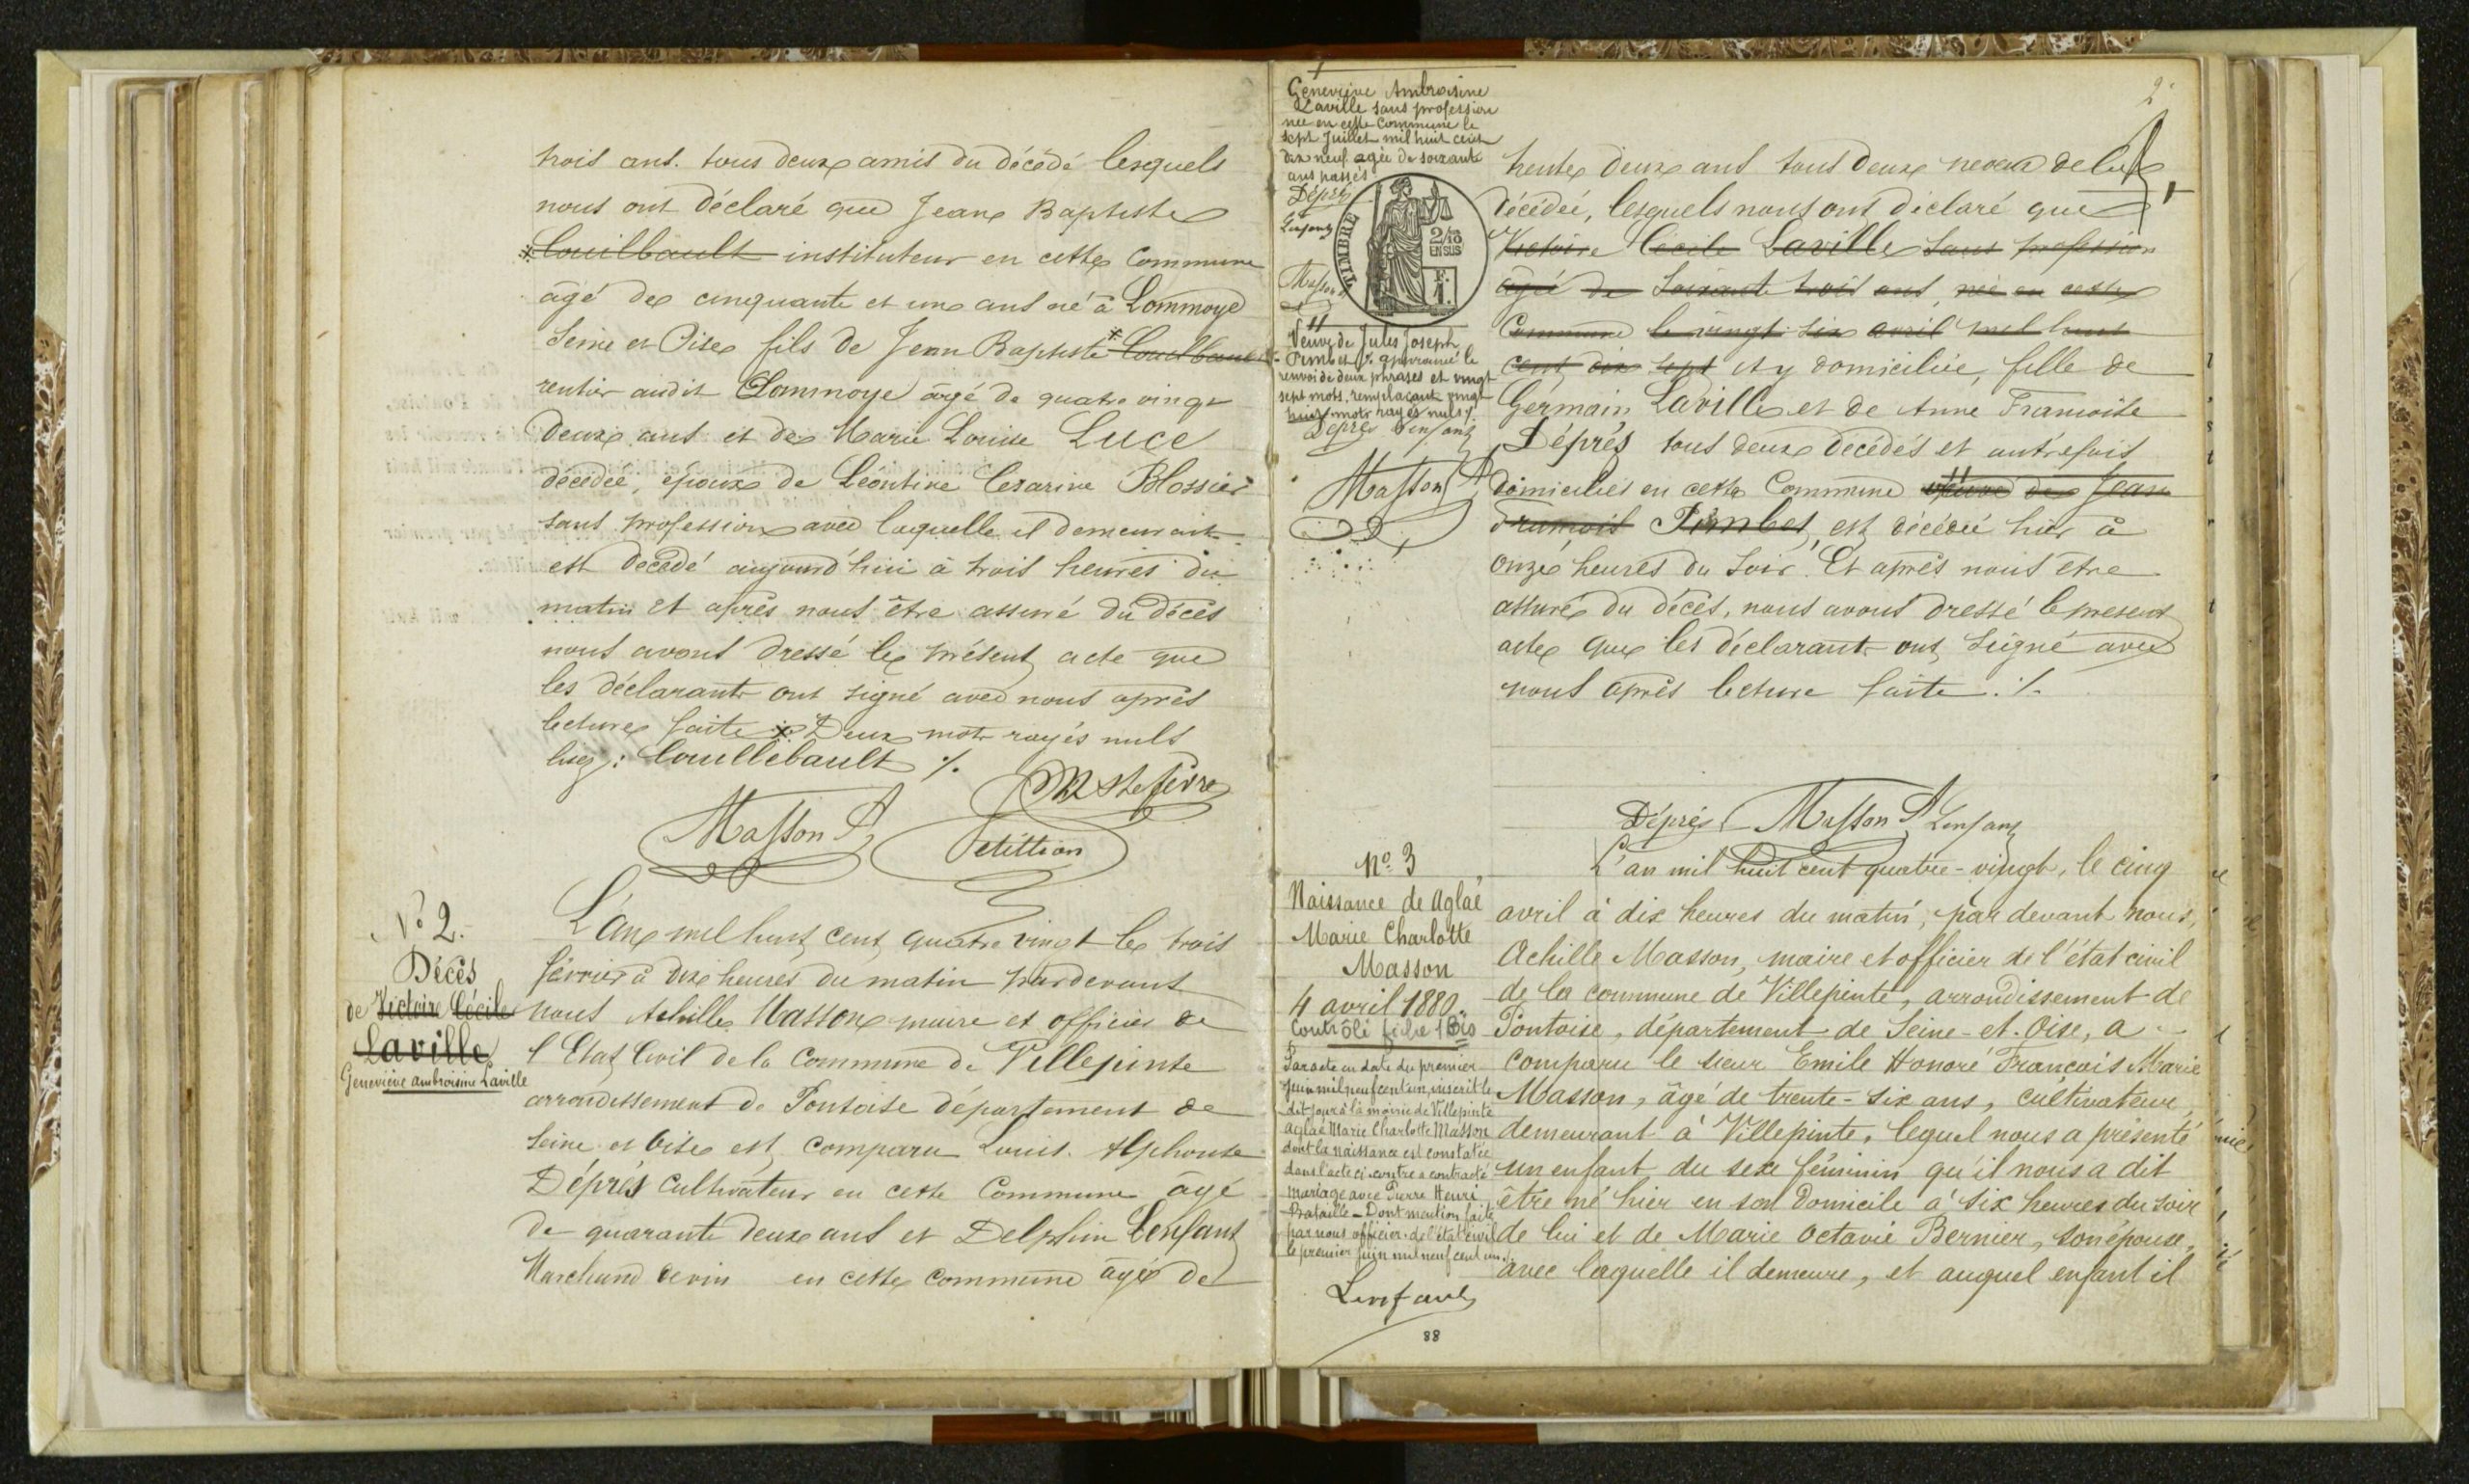 trois ans. tous deux amis du décédé lesquels
nous ont déclaré que Jean Baptiste
* Couilbault instituteur en cette Commune
âgé de cinquante et un ans né à Lommoye
Seine et Oise fils de Jean Baptiste * Couilbault
rentier audit Lommoye âgé de quatre vingt
deux ans et de Marie Louise Luce
décédée, époux de Léontine Cesarine Blossier
sans profession avec laquelle il demeurait
est décédé aujourd'hui à trois heures du
matin et après nous être assuré du décès
nous avons dressé le présent acte que
les déclarants ont signé avec nous après
lecture faite * Deux mots rayés nuls
lisez: Couillebault ./.
Lefèvre
Masson A
Petittion
N° 2.
Décès
de Victoire Cécile
Laville
Geneviève Ambroisine Laville
L'an mil huit cent quatre vingt le trois
février à dix heures du matin pardevant
nous Achille Masson maire et officier de
l'Etat Civil de la Commune de Villepinte
arrondissement de Pontoise département de
Seine et Oise est comparu Louis Alphonse
Déprés cultivateur en cette Commune âgé
de quarante deux ans et Delphin Lenfant
Marchand de vin en cette commune âgé de
2
Geneviève Ambroisine
Laville sans profession
née en cette Commune le
sept Juillet mil huit cent
dix neuf agée de soixante
ans passés
Déprés
Lenfant
Masson
TIMBRE
2/10
EN SUS
1 F.
" Veuve de Jules Joseph
Pimbet ./. approuvé le
renvoi de deux phrases et vingt
sept mots, remplaçant vingt
huit mots rayés nuls ./.
Déprés Lenfant
Masson A
trente deux ans tous deux neveux de la
décédée, lesquels nous ont déclaré que
Victoire Cécile Laville sans profession
âgée de soixante trois ans, née en cette
Commune le vingt six avril mil huit
cent dix sept et y domiciliée, fille de
Germain Laville et de Anne Françoise
Déprés tous deux décédés et autrefois
domiciliés en cette Commune " veuve de Jean
François Pimbet, est décédée hier à
onze heures du soir. Et après nous être
assuré du décès, nous avons dressé le présent
acte que les déclarants ont signé avec
nous après lecture faite. ./.
Déprés Masson A Lenfant
N° 3
Naissance de Aglaé
Marie Charlotte
Masson
4 avril 1880.
Contrôlé fiche 1 Bis
Par acte en date du premier
juin mil neuf cent un, inscrit le
dit jour à la mairie de Villepinte
Aglaé Marie Charlotte Masson
dont la naissance est constatée
dans l'acte ci-contre a contracté
mariage avec Pierre Henri
Bataille - Dont mention faite
par nous officier de l'état civil
le premier juin mil neuf cent un ./.
Lenfant
88
L'an mil huit cent quatre-vingt, le cinq
avril à dix heures du matin, par devant nous,
Achille Masson, maire et officier de l'état civil
de la commune de Villepinte, arrondissement de
Pontoise, département de Seine-et-Oise, a
comparu le sieur Emile Honoré François Marie
Masson, âgé de trente-six ans, cultivateur,
demeurant à Villepinte, lequel nous a présenté
un enfant du sexe féminin qu'il nous a dit
être né hier en son domicile à six heures du soir
de lui et de Marie Octavie Bernier, son épouse,
avec laquelle il demeure, et auquel enfant il